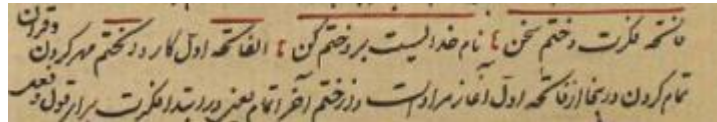 فاتحه فکرت و ختم سخن ؛ نام خدا لیست برو ختم کن ؛ الفاتحه اول کار و در ختم مهر کردن و قران
تمام کردن در ینجا از فاتحه اول آغاز مراد است و از ختم آخر اتمام یعنی در ابتدا فکرت برار قول و فعل